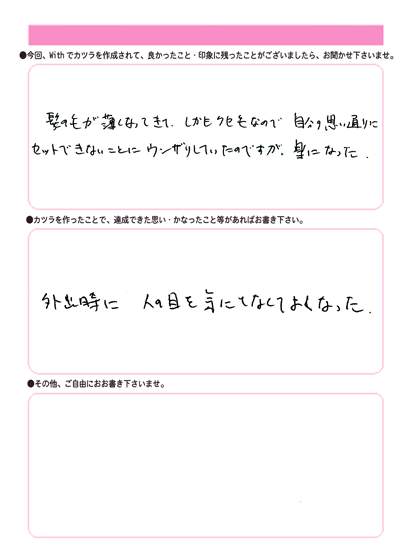 ●今回、Withでカツラを作成されて、良かったこと・印象に残ったことがございましたら、お聞かせ下さいませ。
髪の毛が薄くなってきて、しかもクセ毛なので 自分の思い通りに
セットできないことに ウンザリしていたのですが、楽になった.
●カツラを作ったことで、達成できた思い・かなったこと等があればお書き下さい。
外出時に 人の目を気にしなくてよくなった.
●その他、ご自由におお書き下さいませ。